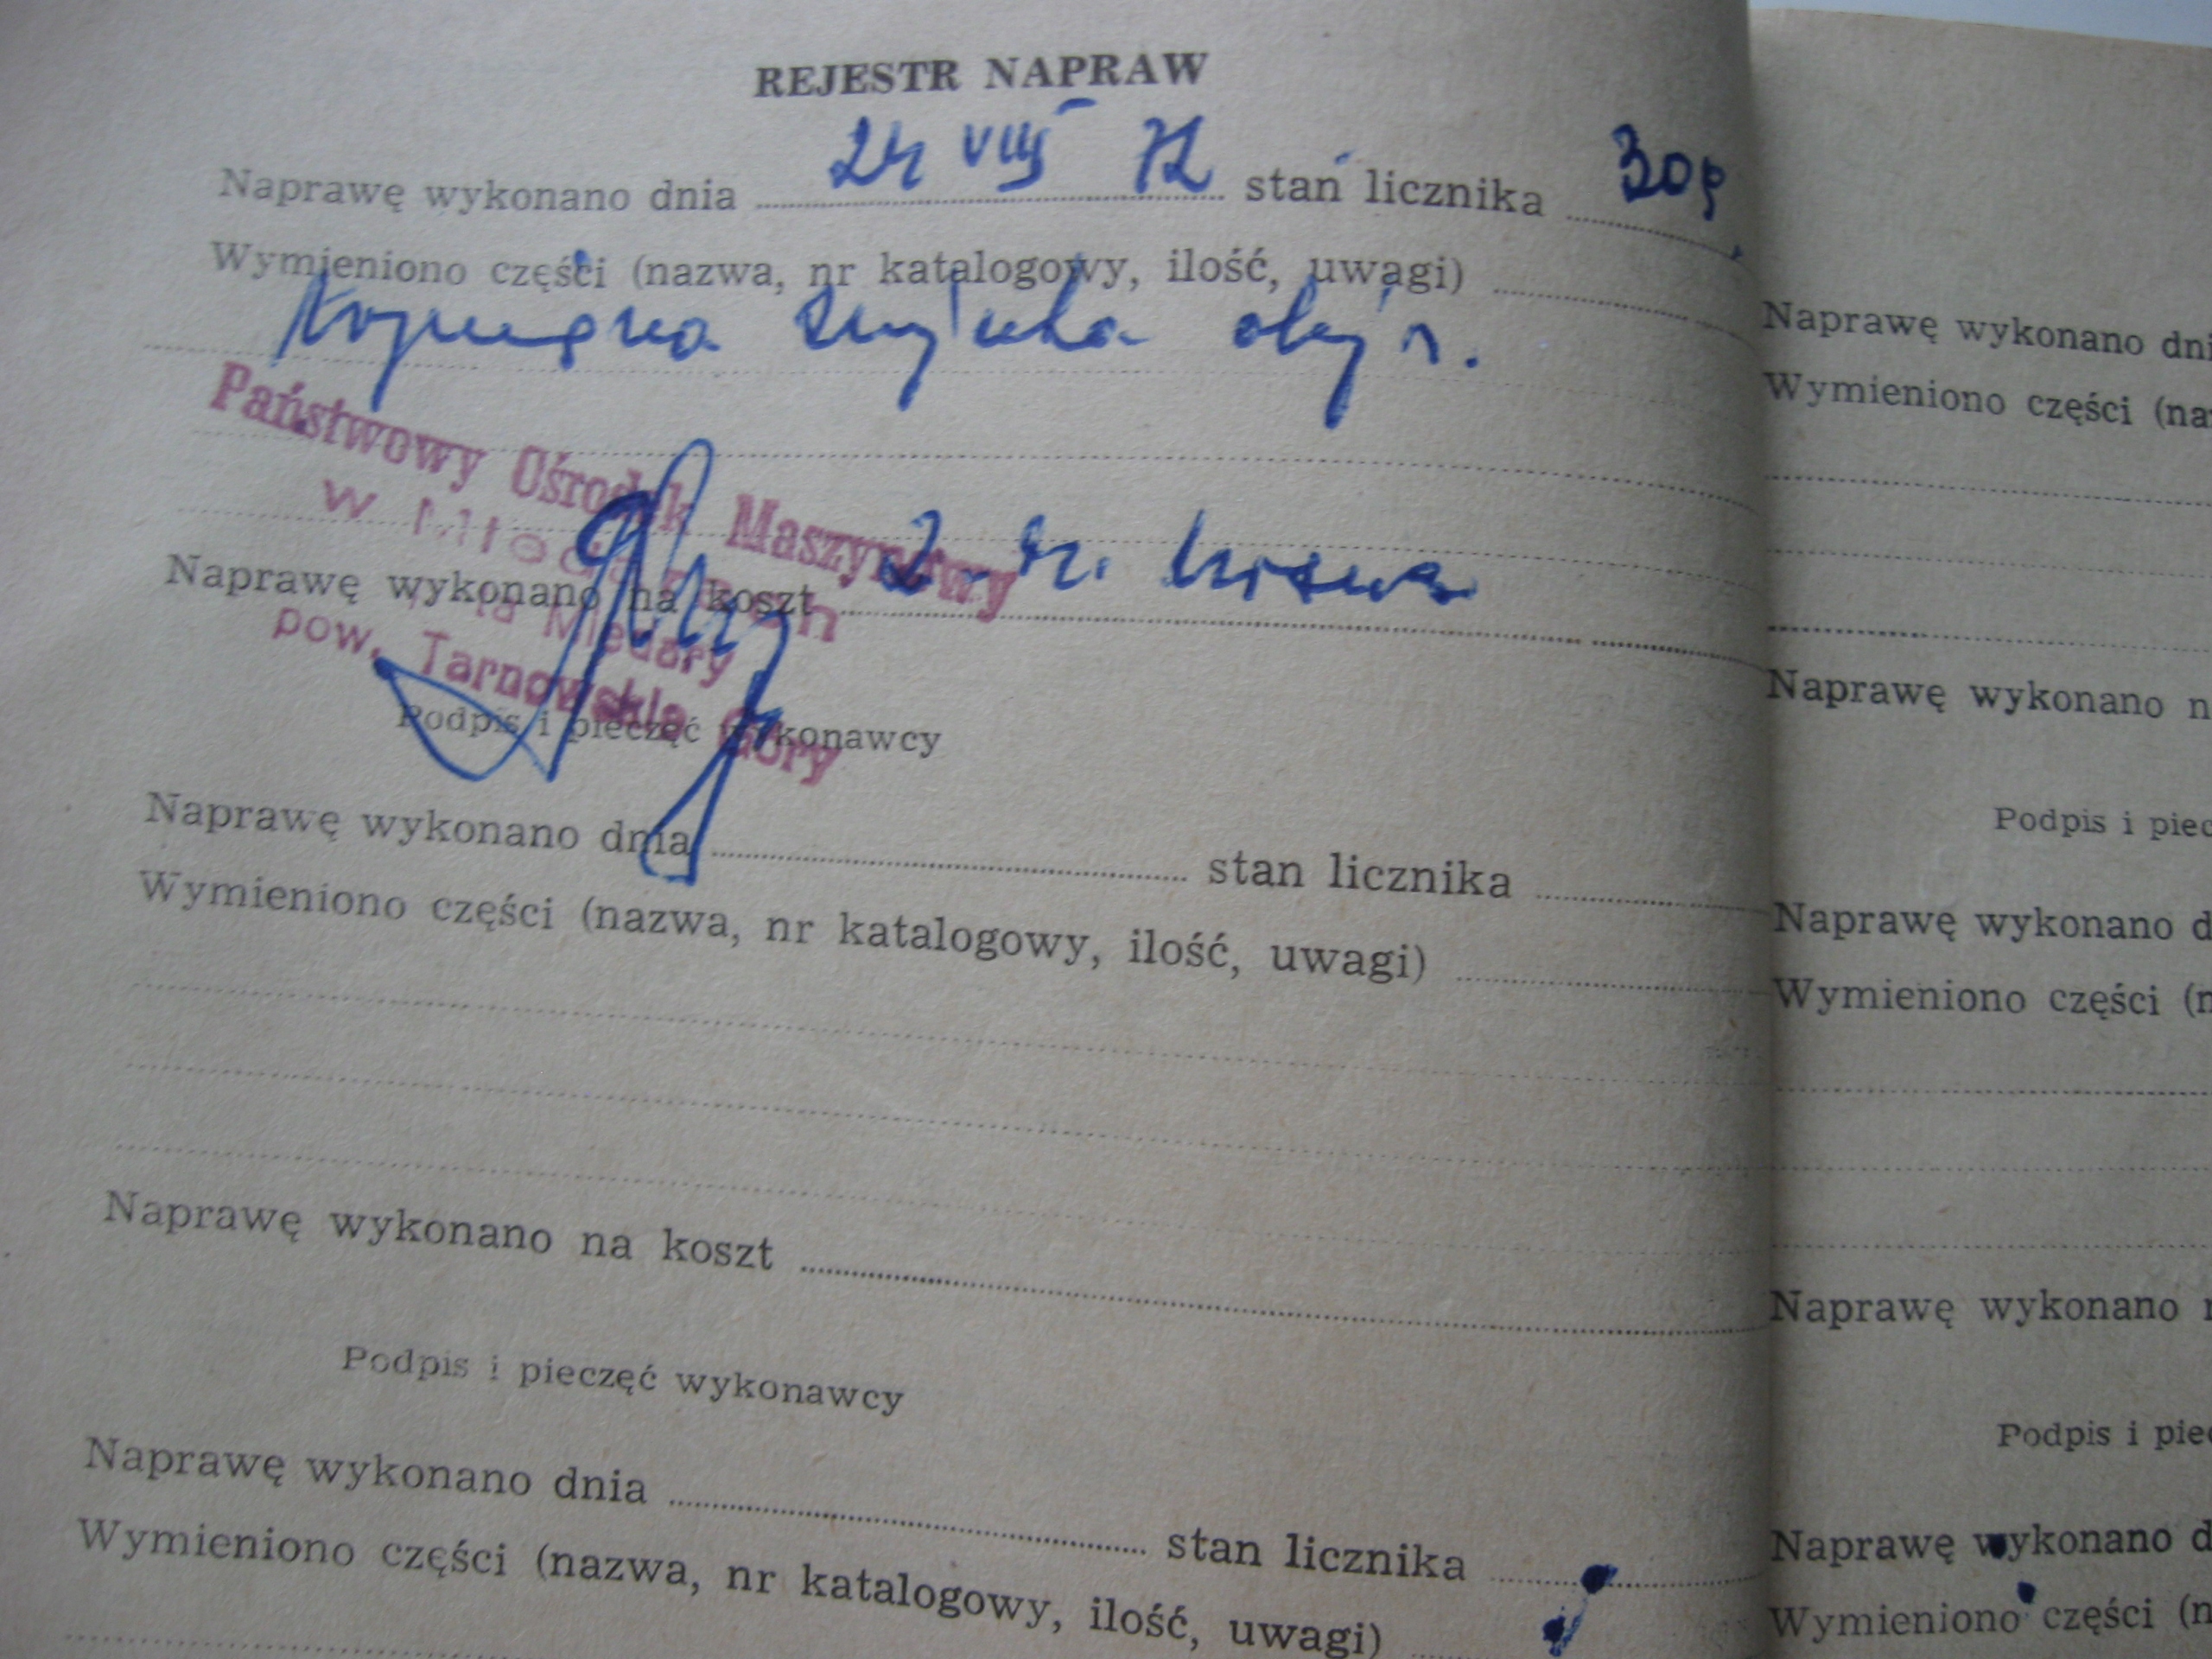 REJESTR NAPRAW
Naprawę wykonano dnia 24 VIII 72 stan licznika 309
Wymieniono części (nazwa, nr katalogowy, ilość, uwagi)
Państwowy Ośrodek Maszynowy
w
Naprawę wykonano na koszt
Miedary
pow. Tarnowskie Góry
Podpis i pieczęć wykonawcy
Naprawę wykonano dnia stan licznika
Wymieniono części (nazwa, nr katalogowy, ilość, uwagi)
Naprawę wykonano na koszt
Podpis i pieczęć wykonawcy
Naprawę wykonano dnia stan licznika
Wymieniono części (nazwa, nr katalogowy, ilość, uwagi)
Naprawę wykonano dni
Wymieniono części (na
Naprawę wykonano n
Podpis i piec
Naprawę wykonano d
Wymieniono części (n
Naprawę wykonano
Podpis i pie
Naprawę wykonano d
Wymieniono części (n